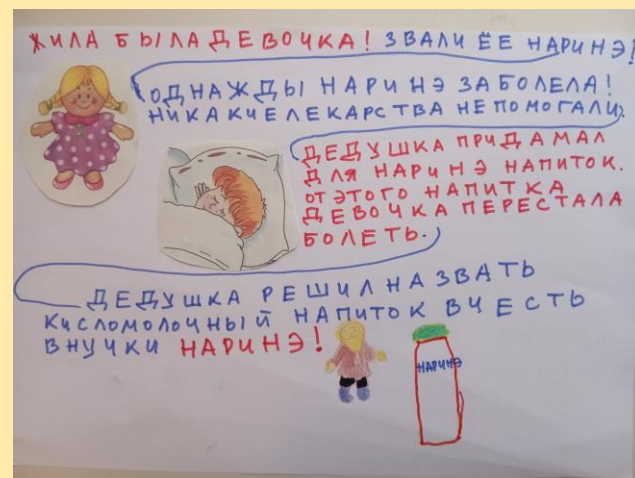 ЖИЛА БЫЛА ДЕВОЧКА! ЗВАЛИ ЕЁ НАРИНЭ!
ОДНАЖДЫ НАРИНЭ ЗАБОЛЕЛА!
НИКАКИЕ ЛЕКАРСТВА НЕ ПОМОГАЛИ.
ДЕДУШКА ПРИДАМАЛ
ДЛЯ НАРИНЭ НАПИТОК.
ОТ ЭТОГО НАПИТКА
ДЕВОЧКА ПЕРЕСТАЛА
БОЛЕТЬ.
ДЕДУШКА РЕШИЛ НАЗВАТЬ
КИСЛОМОЛОЧНЫЙ НАПИТОК В ЧЕСТЬ
ВНУЧКИ НАРИНЭ!
НАРИНЭ